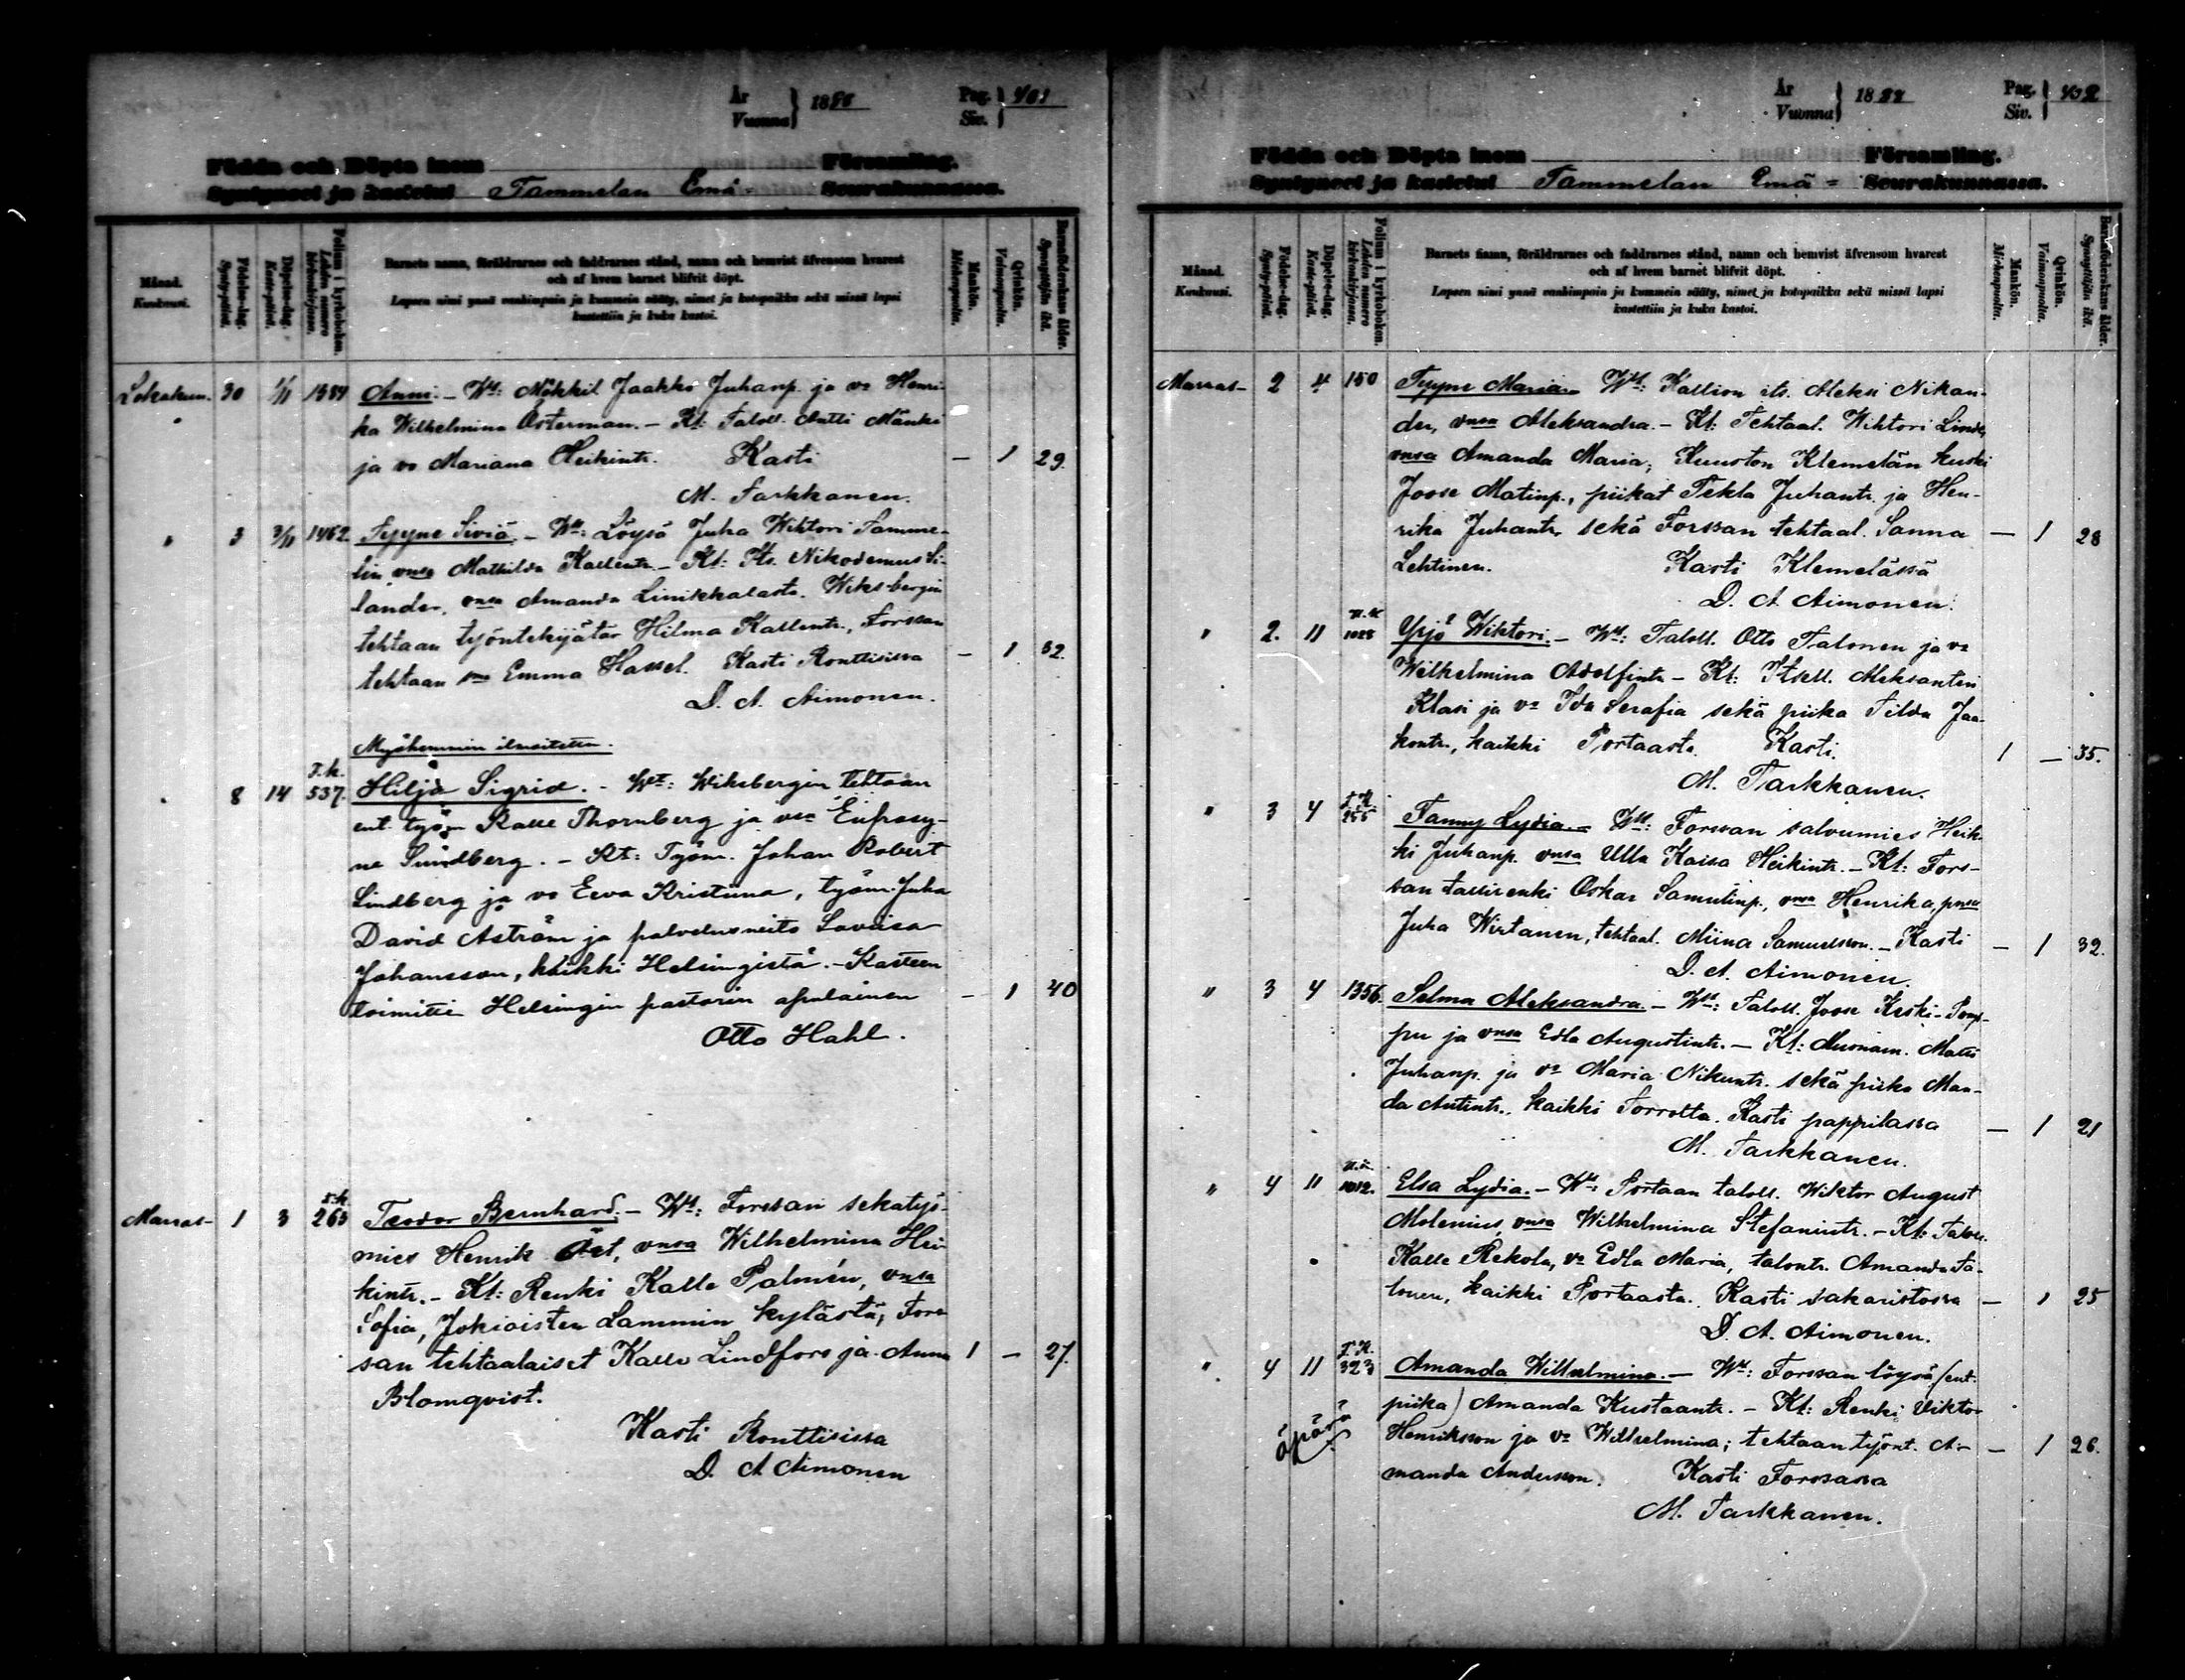 År
Vuonna } 1888 Pag. Siv. } 401
Födda och Döpta inom Församling.
Syntyneet ja kastetut Tammelan Emä- Seurakunnassa.
Månad. Kuukausi.
Födelse-dag. Synty-päivä.
Döpelse-dag. Kaste-päivä.
Folium i kyrkoboken. Lehden numero kirkonkirjassa.
Barnets namn, föräldrarnes och faddrarnes stånd, namn och hemvist äfvensom hvarest
och af hvem barnet blifvit döpt.
Lapsen nimi ynnä vanhimpain ja kummein sääty, nimet ja kotopaikka sekä missä lapsi
kastettiin ja kuka kastoi.
Mankön. Miehenpuolta.
Qvinkön. Vaimonpuolta.
Barnaföderskans ålder. Synnyttäjän ikä.
Lokakuu. 30 1/11 1384 Anni. – Wt: Mökkil Jaakko Juhanp. ja vo Henri-
ka Wilhelmina Österman. – Kt: Taloll. Antti Mänki
ja vo Mariana Heikintr. Kasti — 1 29.
M. Tarkkanen.
" 3 3/11 1462. Tyyne Siviä. – Wt: Löysä Juha Wiktori Tamme-
lin vnsa Mathilda Kallentr. – Kt: Its. Nikodemus Si-
lander, vnsa Amanda Linikkalasta. Wiksbergin
tehtaan työntekijätär Hilma Kallentr., Forssan
tehtaan Emma Hassel. Kasti Ronttisissa — 1 32.
D. A. Aimonen.
Myöhemmin ilmoitettu.
T.k.
8 14 537. Hilja Sigrid. – Wt: Wiksbergin tehtaan
ent. työm Kalle Thornberg ja vsa Eufrosy-
ne Sundberg. – Kt: Työm. Johan Robert
Lindberg ja vo Eeva Kristiina, työm. Juha
David Åström ja palvelusneito Loviisa
Johansson, kaikki Helsingistä. – Kasteen
toimitti Helsingin pastorin apulainen — 1 40
Otto Hahl.
T.k.
Marras- 1 3 265 Teodor Bernhard. – Wt: Forssan sekatyö-
mies Henrik Öst, vnsa Wilhelmina Hei-
kintr. – Kt: Renki Kalle Palmén, vnsa
Sofia, Jokioisten Lammin kylästä, Fors-
san tehtaalaiset Kalle Lindfors ja Anna 1 — 27.
Blomqvist.
Kasti Ronttisissa
D. A Aimonen
År
Vuonna } 1888 Pag. Siv. } 402
Födda och Döpta inom Församling.
Syntyneet ja kastetut Tammelan Emä- Seurakunnassa.
Månad. Kuukausi.
Födelse-dag. Synty-päivä.
Döpelse-dag. Kaste-päivä.
Folium i kyrkoboken. Lehden numero kirkonkirjassa.
Barnets namn, föräldrarnes och faddrarnes stånd, namn och hemvist äfvensom hvarest
och af hvem barnet blifvit döpt.
Lapsen nimi ynnä vanhimpain ja kummein sääty, nimet ja kotopaikka sekä missä lapsi
kastettiin ja kuka kastoi.
Mankön. Miehenpuolta.
Qvinkön. Vaimonpuolta.
Barnaföderskans ålder. Synnyttäjän ikä.
Marras- 2 4 150 Tyyne Maria. – Wt: Kallion its. Aleksi Nikan-
der, vnsa Aleksandra. – Kt: Tehtaal. Wihtori Linde,
vnsa Amanda Maria, Kuuston Klemelän kuski
Joose Matinp., piikat Tekla Juhantr. ja Hen-
rika Juhantr. sekä Forssan tehtaal. Sanna — 1 28
Lehtinen. Kasti Klemelässä
D. A Aimonen.
" 2. 11 1028 Yrjö Wiktori. – Wt: Taloll. Otto Talonen ja vo
Wilhelmina Adolfintr. – Kt: Itsell. Aleksanteri
Klasi ja vo Ida Serafia sekä piika Tilda Jaa-
kontr., kaikki Portaasta. Kasti 1 — 35.
M. Tarkkanen.
T.K.
" 3 4 255 Fanny Lydia. – Wt: Forssan salvumies Heik-
ki Juhanp. vnsa Ulla Kaisa Heikintr. – Kt: Fors-
san tallirenki Oskar Samulinp., vnsa Henrika,
Juha Wirtanen, tehtaal. Miina Samuelsson. – Kasti — 1 32.
D. A. Aimonen.
" 3 4 1356. Selma Aleksandra. – Wt: Taloll. Joose Keski-Pomp-
pu ja vnsa Edla Augustintr. – Kt: Muonam. Matti
Juhanp. ja vo Maria Nikuntr. sekä piika Man-
da Antintr., kaikki Torrolta. Kasti pappilassa — 1 21
M. Tarkkanen.
" 4 11 1012. Elsa Lydia. – Wt: Portaan taloll. Wiktor August
Molenius, vnsa Wilhelmina Stefanintr. – Kt: Taloll.
Kalle Rekola, vo Edla Maria, talontr. Amanda Ta-
lonen, kaikki Portaasta. Kasti sakaristossa — 1 25
D. A. Aimonen.
T.K.
" 4 11 323 Amanda Wilhelmina. – Wt: Forssan löysä (ent.
piika) Amanda Kustaantr. – Kt: Renki Viktor
äpärä Henriksson ja vo Wilhelmina; tehtaan työnt. A- — 1 26.
manda Andersson. Kasti Forssassa
M. Tarkkanen.